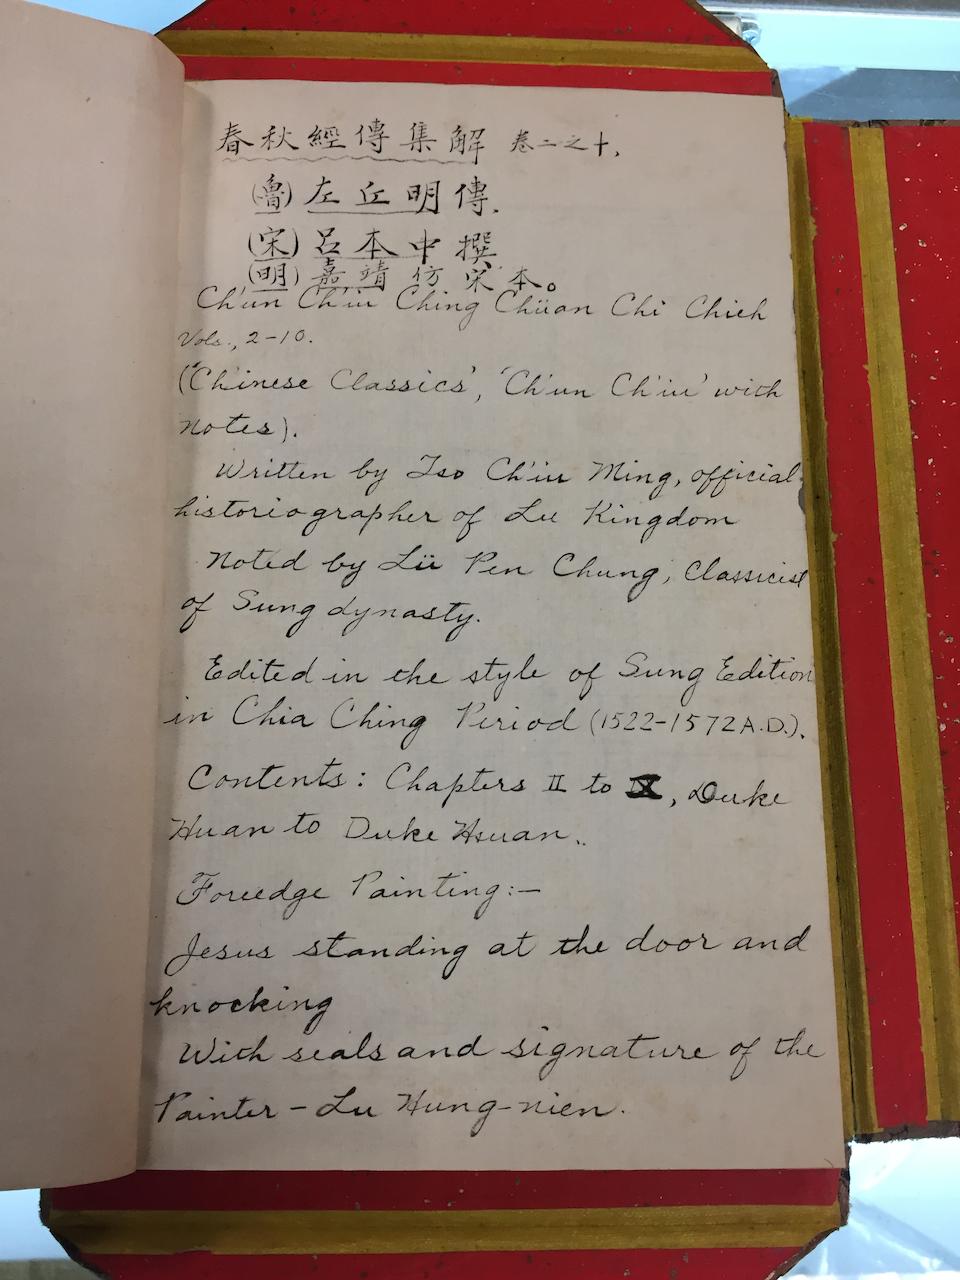 春秋經傳集解 卷二之十.
(魯)左丘明傳.
(宋)呂本中撰
(明)嘉靖仿宋本。
Ch'un Ch'iu Ching Chüan Chi Chieh
Vols., 2-10.
('Chinese Classics', 'Ch'un Ch'iu' with
notes).
Written by Tso Ch'iu Ming, official
historiographer of Lu Kingdom
Noted by Lü Pen Chung, Classicist
of Sung dynasty.
Edited in the style of Sung Edition
in Chia Ching Period (1522-1572 A.D.).
Contents: Chapters II to X, Duke
Huan to Duke Hsuan..
Foreedge Painting:—
Jesus standing at the door and
knocking
With seals and signature of the
Painter - Lu Hung-nien.